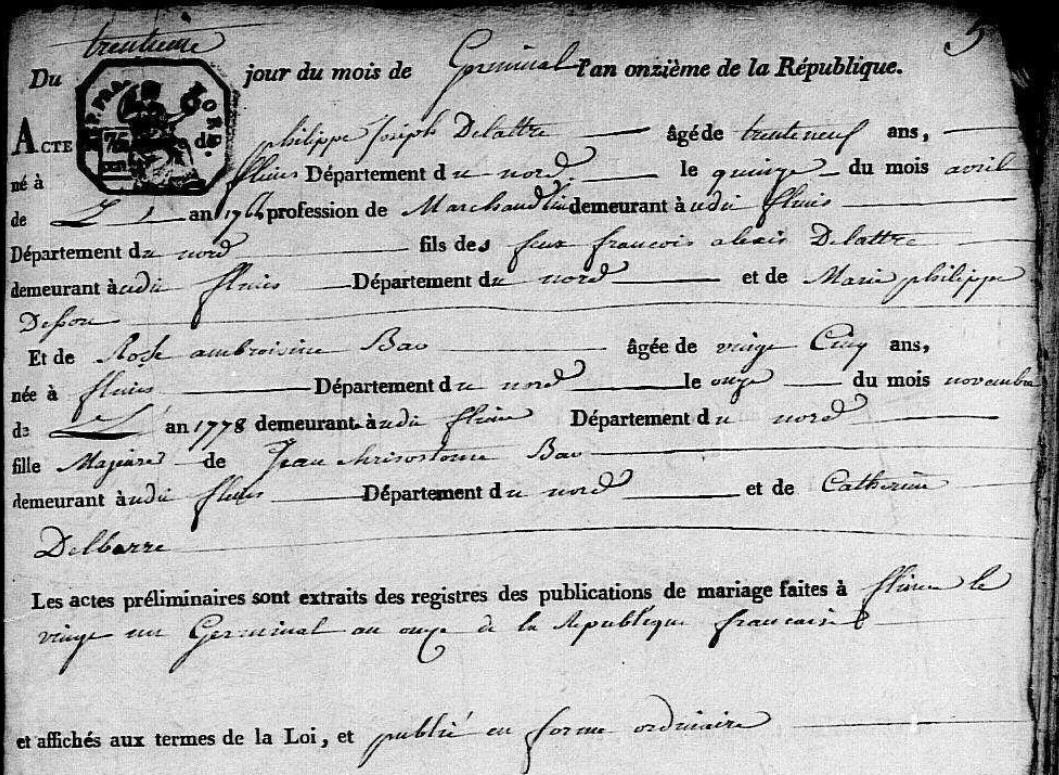 5
Du trentieme jour du mois de Germinal l'an onzième de la République.
REP. FRA NORD.
75 cen
ACTE de philippe Joseph Delattre âgé de trente neuf ans,
né à flines Département du nord. le quinze du mois avril
de L' an 1764 profession de Marchand lin demeurant à udit flines
Département du nord fils des feux francois alexis Delattre
demeurant à udit flines Département du nord et de Marie philippe
Et de Rose ambroisine Bav âgée de vingt Cinq ans,
née à flines Département du nord le onze du mois novembre
de L' an 1778 demeurant à udit flines Département du nord
fille Majeure de Jean chrisostome Bav
demeurant à udit flines Département du nord et de Catherine
Delbarre
Les actes préliminaires sont extraits des registres des publications de mariage faites à flines le
vingt un Germinal an onze de la Republique francaise
et affichés aux termes de la Loi, et publié en forme ordinaire